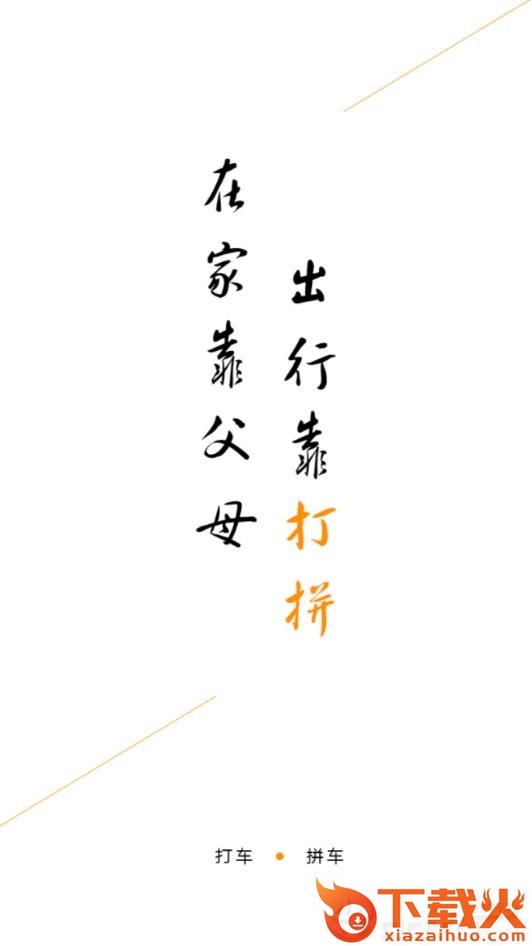 在家靠父母
出行靠打拼
打车 • 拼车
下载火
xiazaihuo.com